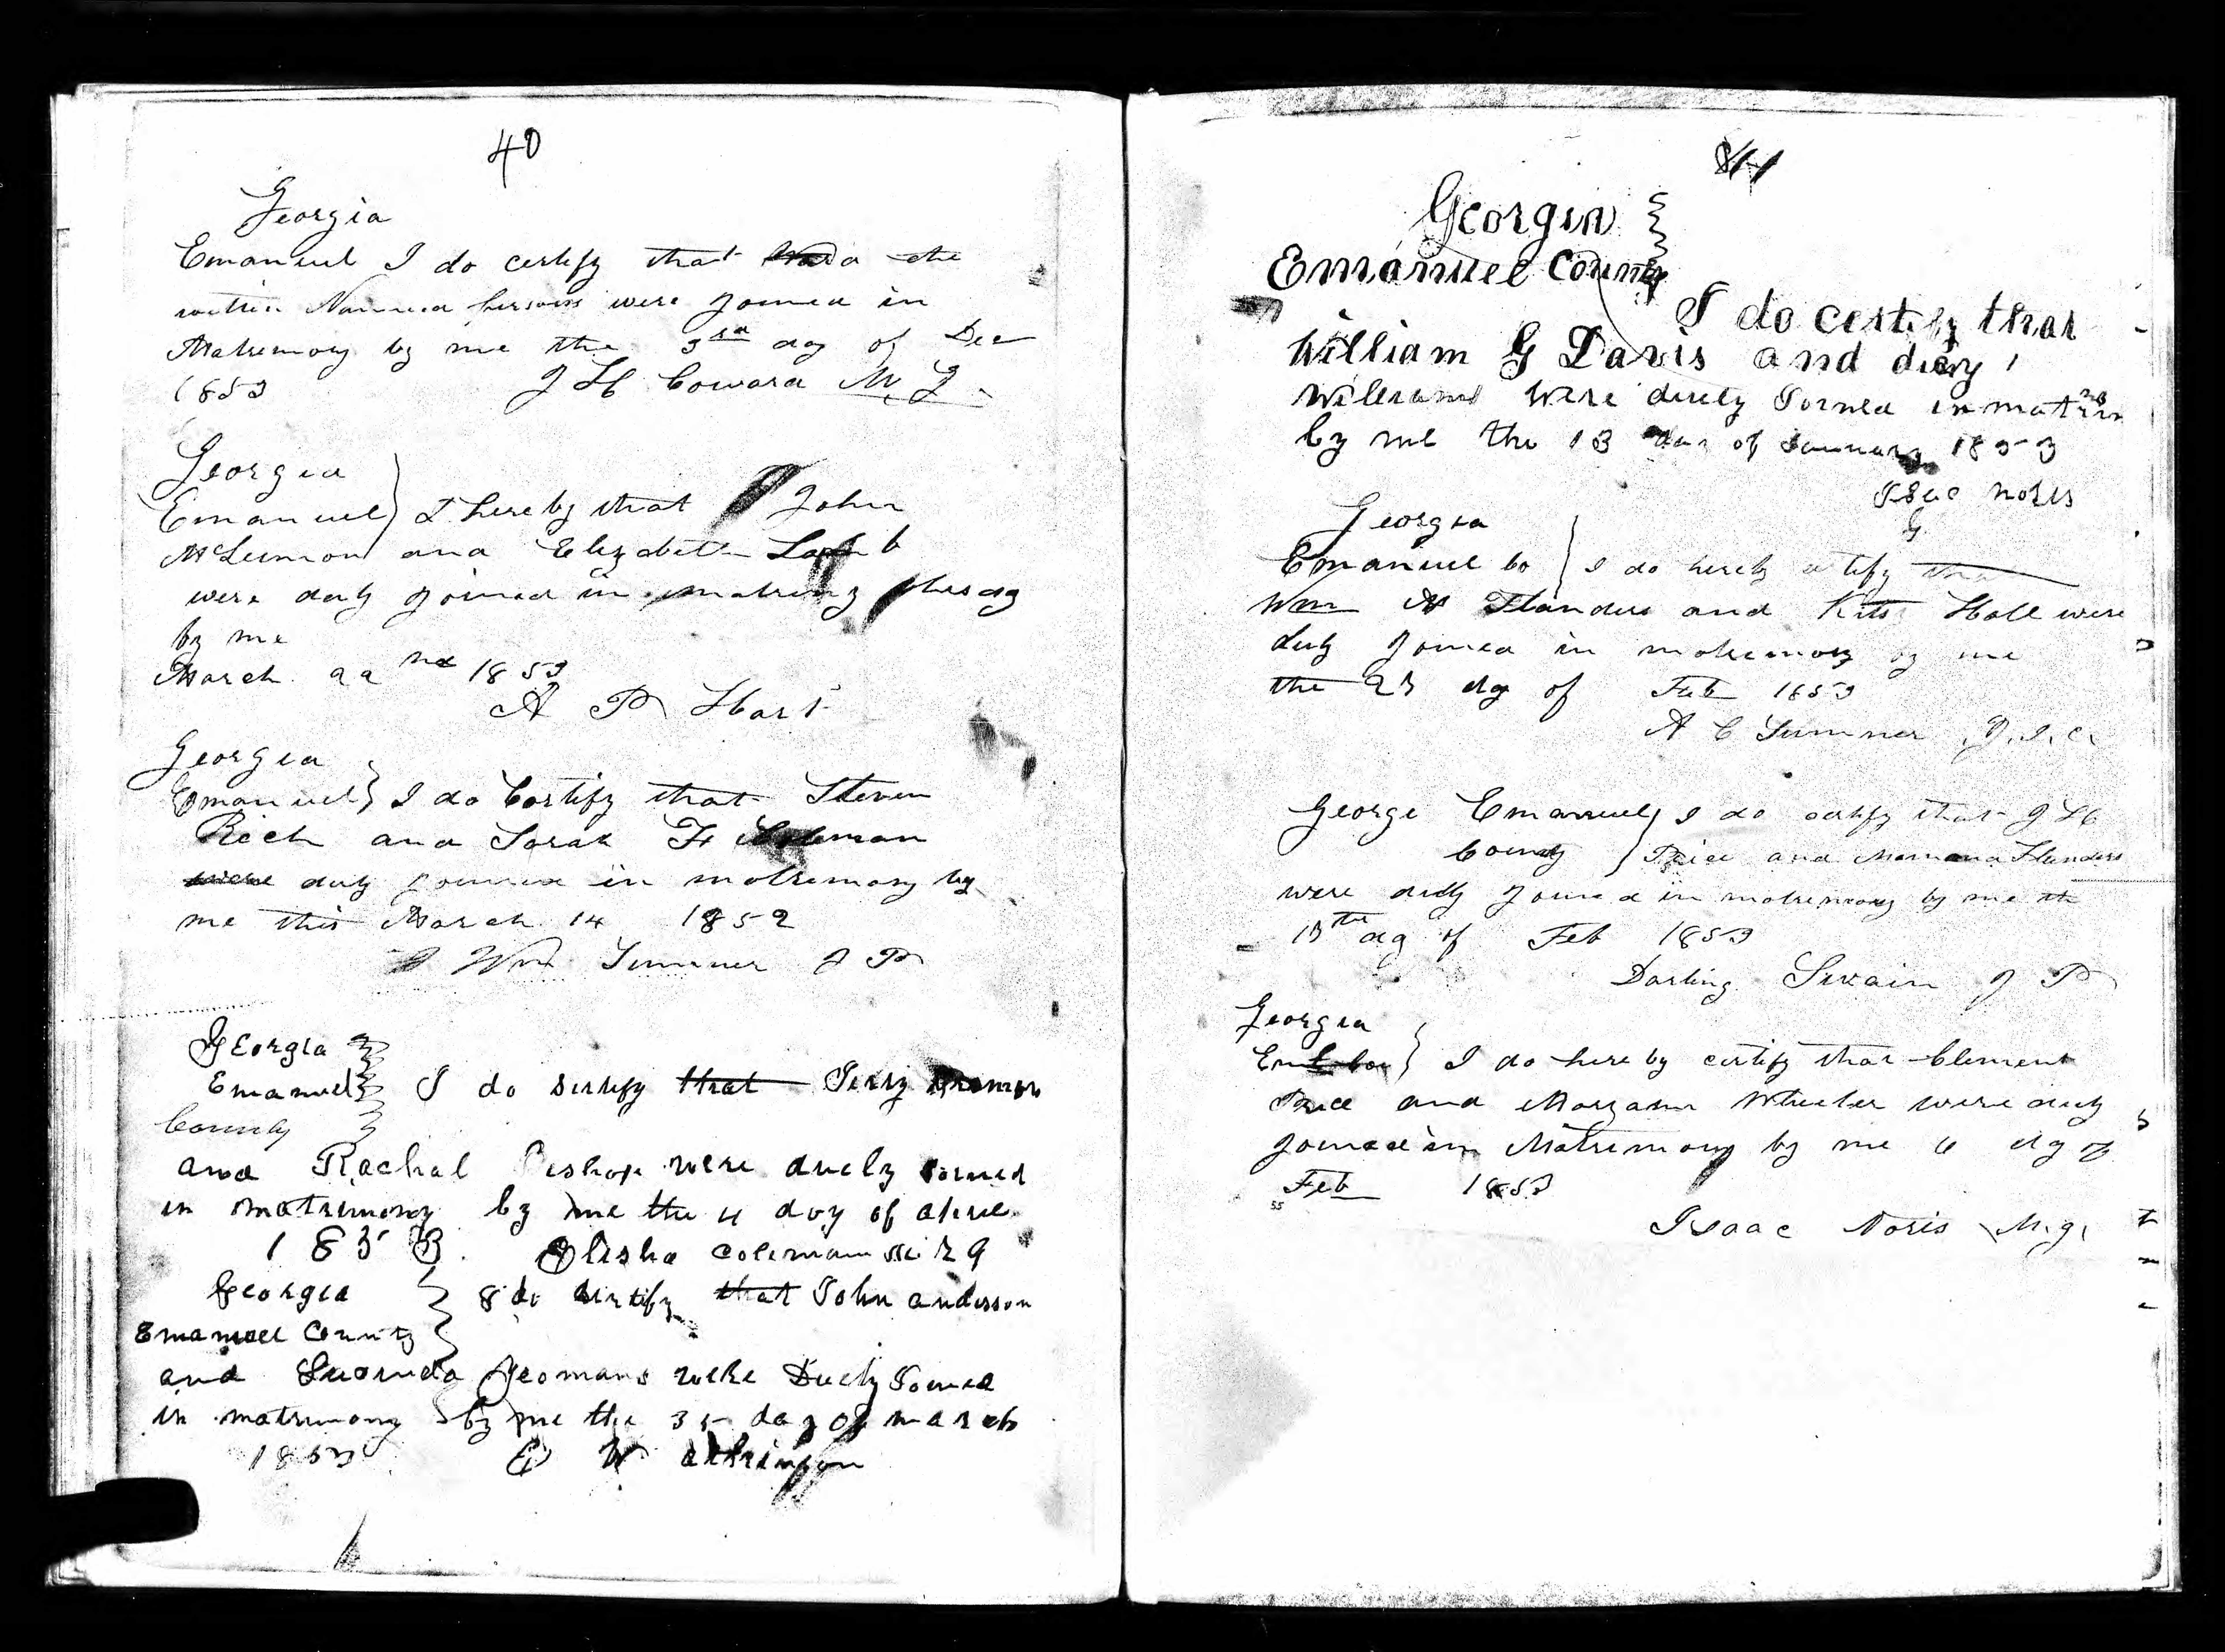 40
Georgia
Emanuel I do certify that the
within Named persons were joined in
Matrimony by me the 3rd day of Dec
1853 J H Coward M G
Georgia
Emanuel } I hereby that John
McLemon and Elizabeth Lamb
were duly joined in matrimony this dy
by me
March 22nd 1853
A P Hart
Georgia
Emanuel } I do Certify that Steven
Rich and Sarah
were duly joined in matrimony by
me this March 14 1852
Wm Sumner J P
Georgia
Emanuel } I do sertify that
County
and Rachal Bishop were duely Joined
in matrimony by me the 4 day of
1853 Elisha Coleman
Georgia } I do sertify that John anderson
Emanuel County
and Lucinda Yeomans were Duely Joined
in matrimony by me the day of march
1853 E W
41
Georgia
Emanuel County
I do certify that
William G Davis and
Williams were duely Joined in
by me the 13 day of January 1853
Noris
Georgia
Emanuel Co } I do hereby certify that
Wm Flanders and Hall were
duly joined in matrimony by me
the 23 dy of Feb 1853
A C Sumner J.I.C.
George Emanuel } I do certify that J H
County } Price and Flanders
were duly joined in matrimony by me the
13th dy of Feb 1853
Darling Swain J P
Georgia
} I do here by certify that Clement
Price and Wheeler were duly
joined in Matrimony by me 6 dy of
Feb 1853
Isaac Noris M.g.